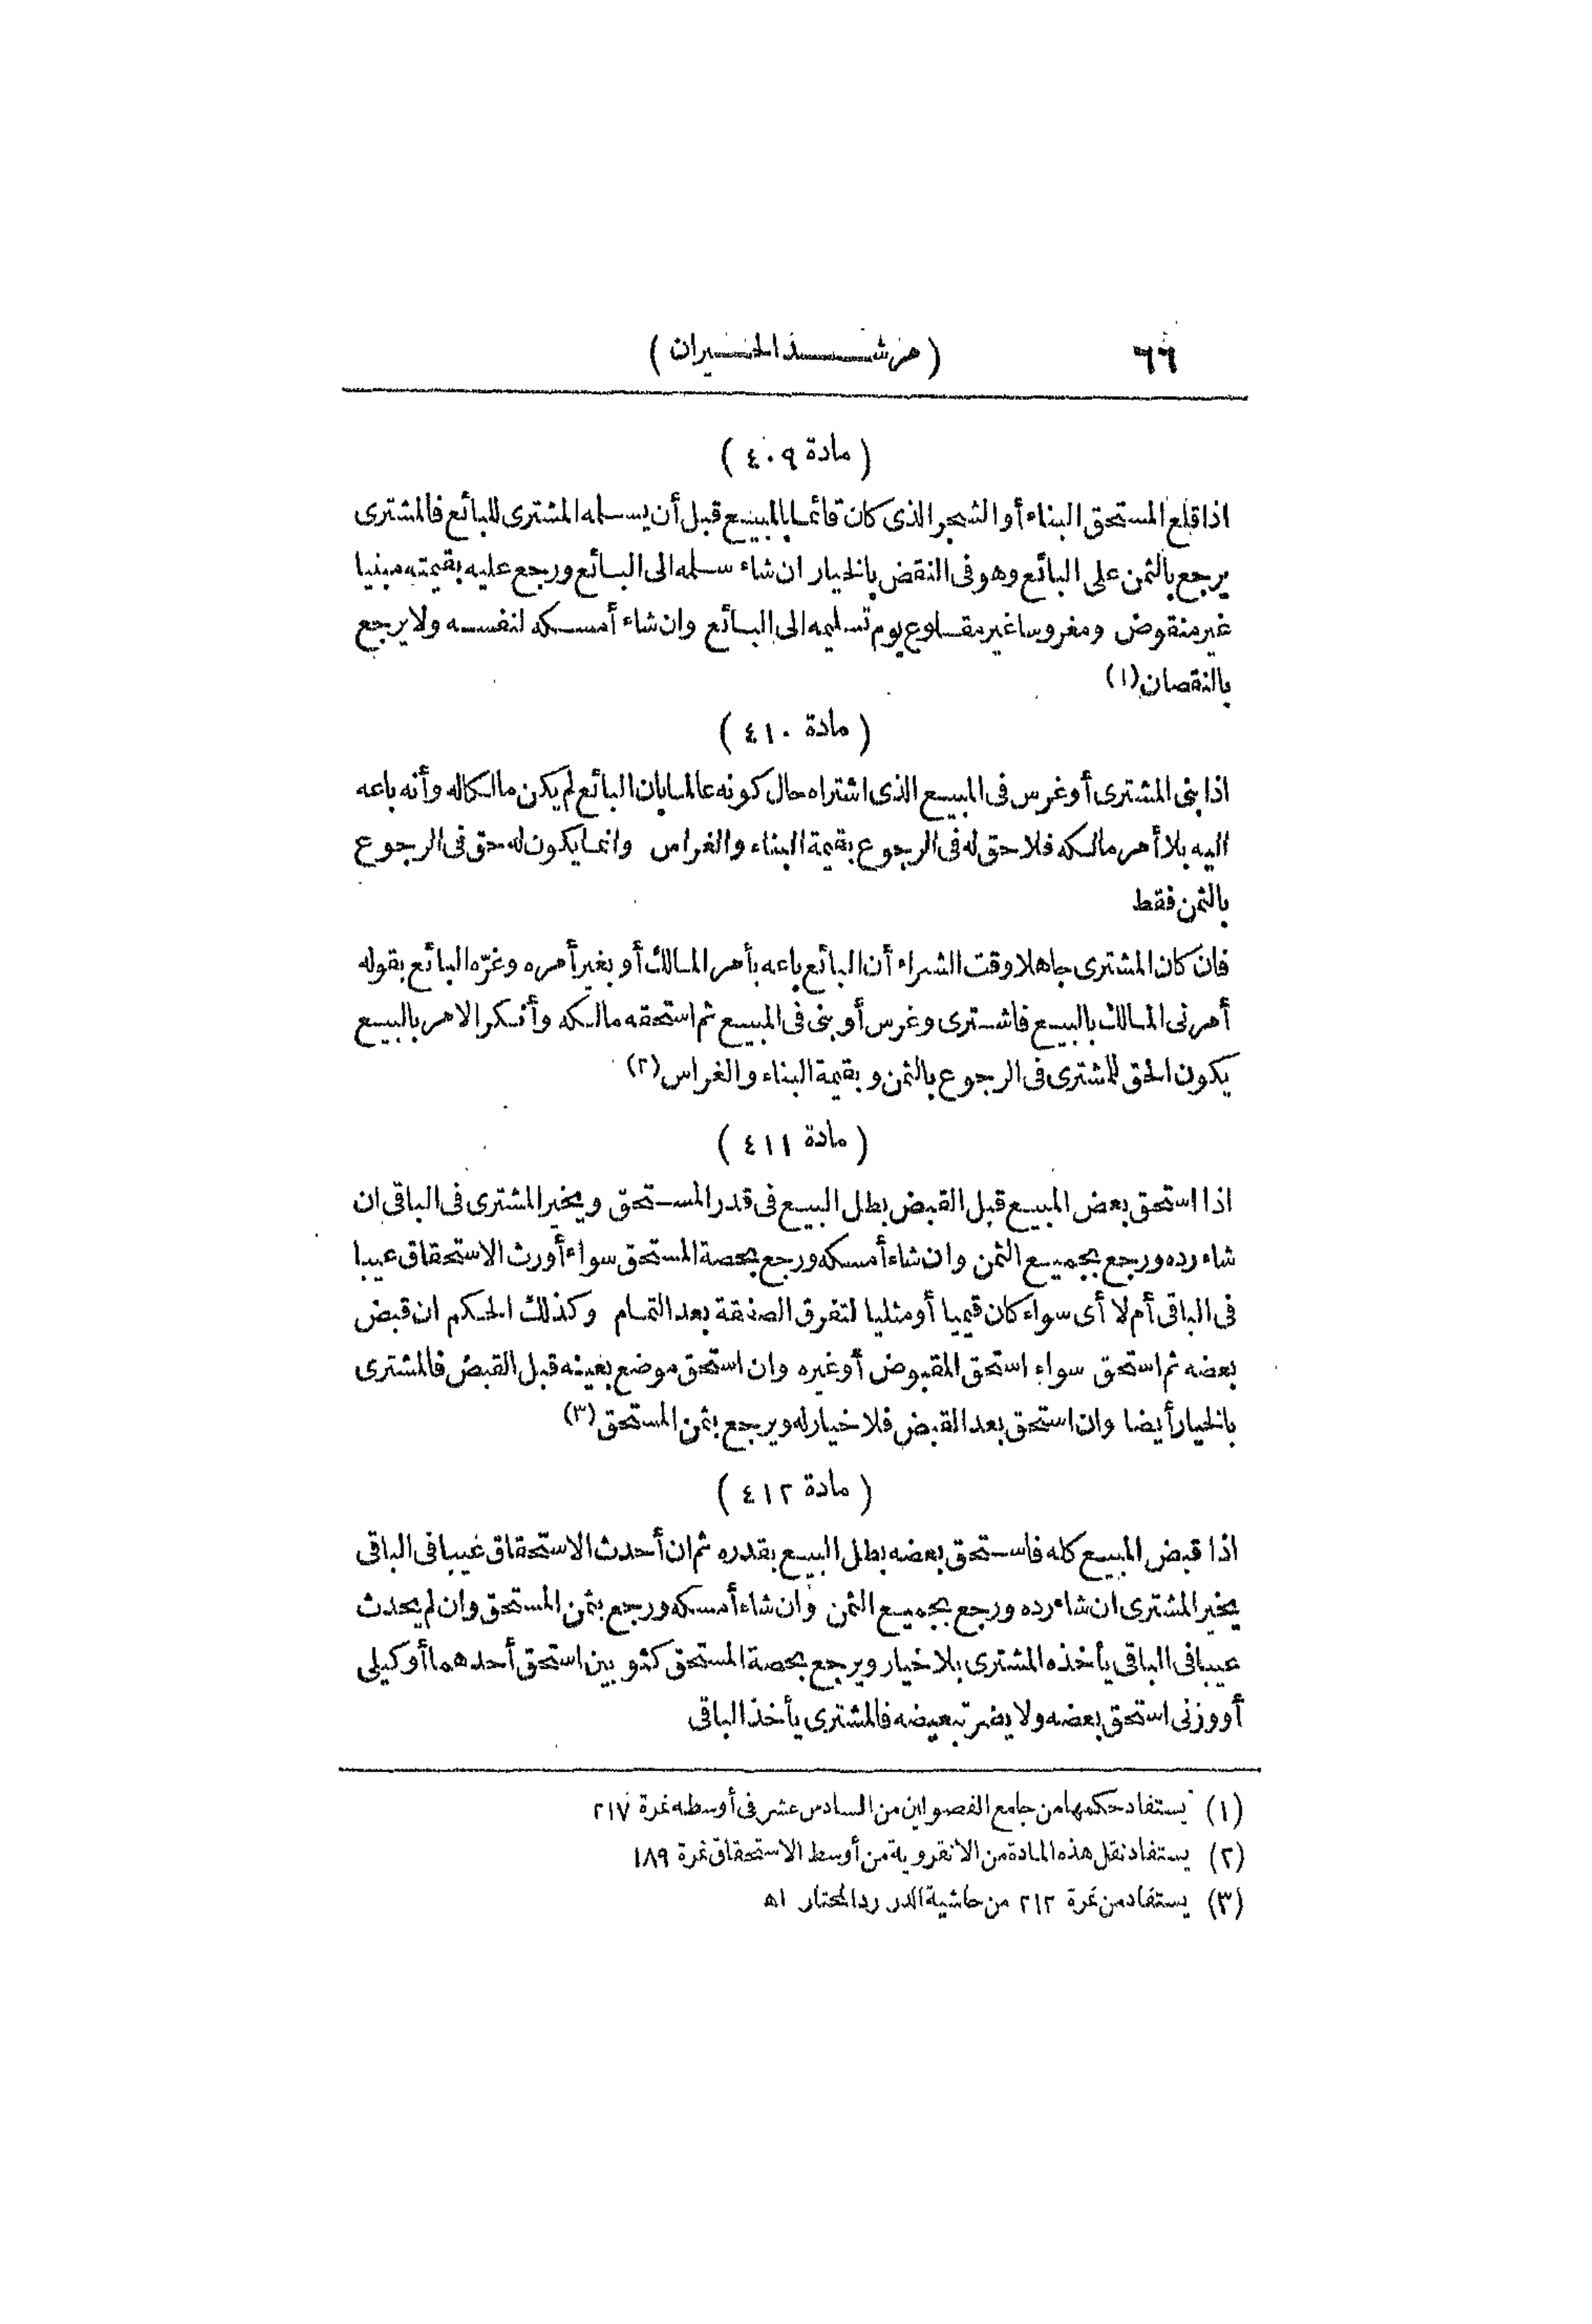 ٦٦
( مرشد الحيران )
( مادة ٤٠٩ )
اذا قلع المستحق البناء أو الشجر الذى كان قائما بالمبيع قبل أن يسلمه المشترى للبائع فالمشترى
يرجع بالثمن على البائع وهو فى النقض بالخيار ان شاء سلمه الى البائع ورجع عليه بقيمته مبنيا
غير منقوض ومغروسا غير مقلوع يوم تسليمه الى البائع وان شاء أمسكه لنفسه ولا يرجع
بالنقصان (١)
( مادة ٤١٠ )
اذا بنى المشترى أو غرس فى المبيع الذى اشتراه حال كونه عالما بان البائع لم يكن مالكا له وأنه باعه
اليه بلا أمر مالكه فلا حق له فى الرجوع بقيمة البناء والغراس وانما يكون له حق فى الرجوع
بالثمن فقط
فان كان المشترى جاهلا وقت الشراء أن البائع باعه بأمر المالك أو بغير أمره وغرّه البائع بقوله
أمرنى المالك بالبيع فاشترى وغرس أو بنى فى المبيع ثم استحقه مالكه وأنكر الامر بالبيع
يكون الحق للمشترى فى الرجوع بالثمن وبقيمة البناء والغراس (٢)
( مادة ٤١١ )
اذا استحق بعض المبيع قبل القبض بطل البيع فى قدر المستحق ويخير المشترى فى الباقى ان
شاء رده ورجع بجميع الثمن وان شاء أمسكه ورجع بحصة المستحق سواء أورث الاستحقاق عيبا
فى الباقى أم لا أى سواء كان قيميا أو مثليا لتفرق الصفقة بعد التمام وكذلك الحكم ان قبض
بعضه ثم استحق سواء استحق المقبوض أو غيره وان استحق موضع بعينه قبل القبض فالمشترى
بالخيار أيضا وان استحق بعد القبض فلا خيار له ويرجع بثمن المستحق (٣)
( مادة ٤١٢ )
اذا قبض المبيع كله فاستحق بعضه بطل البيع بقدره ثم ان أحدث الاستحقاق عيبا فى الباقى
يخير المشترى ان شاء رده ورجع بجميع الثمن وان شاء أمسكه ورجع بثمن المستحق وان لم يحدث
عيبا فى الباقى يأخذه المشترى بلا خيار ويرجع بحصة المستحق كثوبين استحق أحدهما أو كيلى
أو وزنى استحق بعضه ولا يضر تبعيضه فالمشترى يأخذ الباقى
(١) يستفاد حكمها من جامع الفصولين من السادس عشر فى أوسطه نمرة ٢١٧
(٢) يستفاد نقل هذه المادة من الانقروية من أوسط الاستحقاق نمرة ١٨٩
(٣) يستفاد من نمرة ٢١٢ من حاشية الدر رد المحتار اه